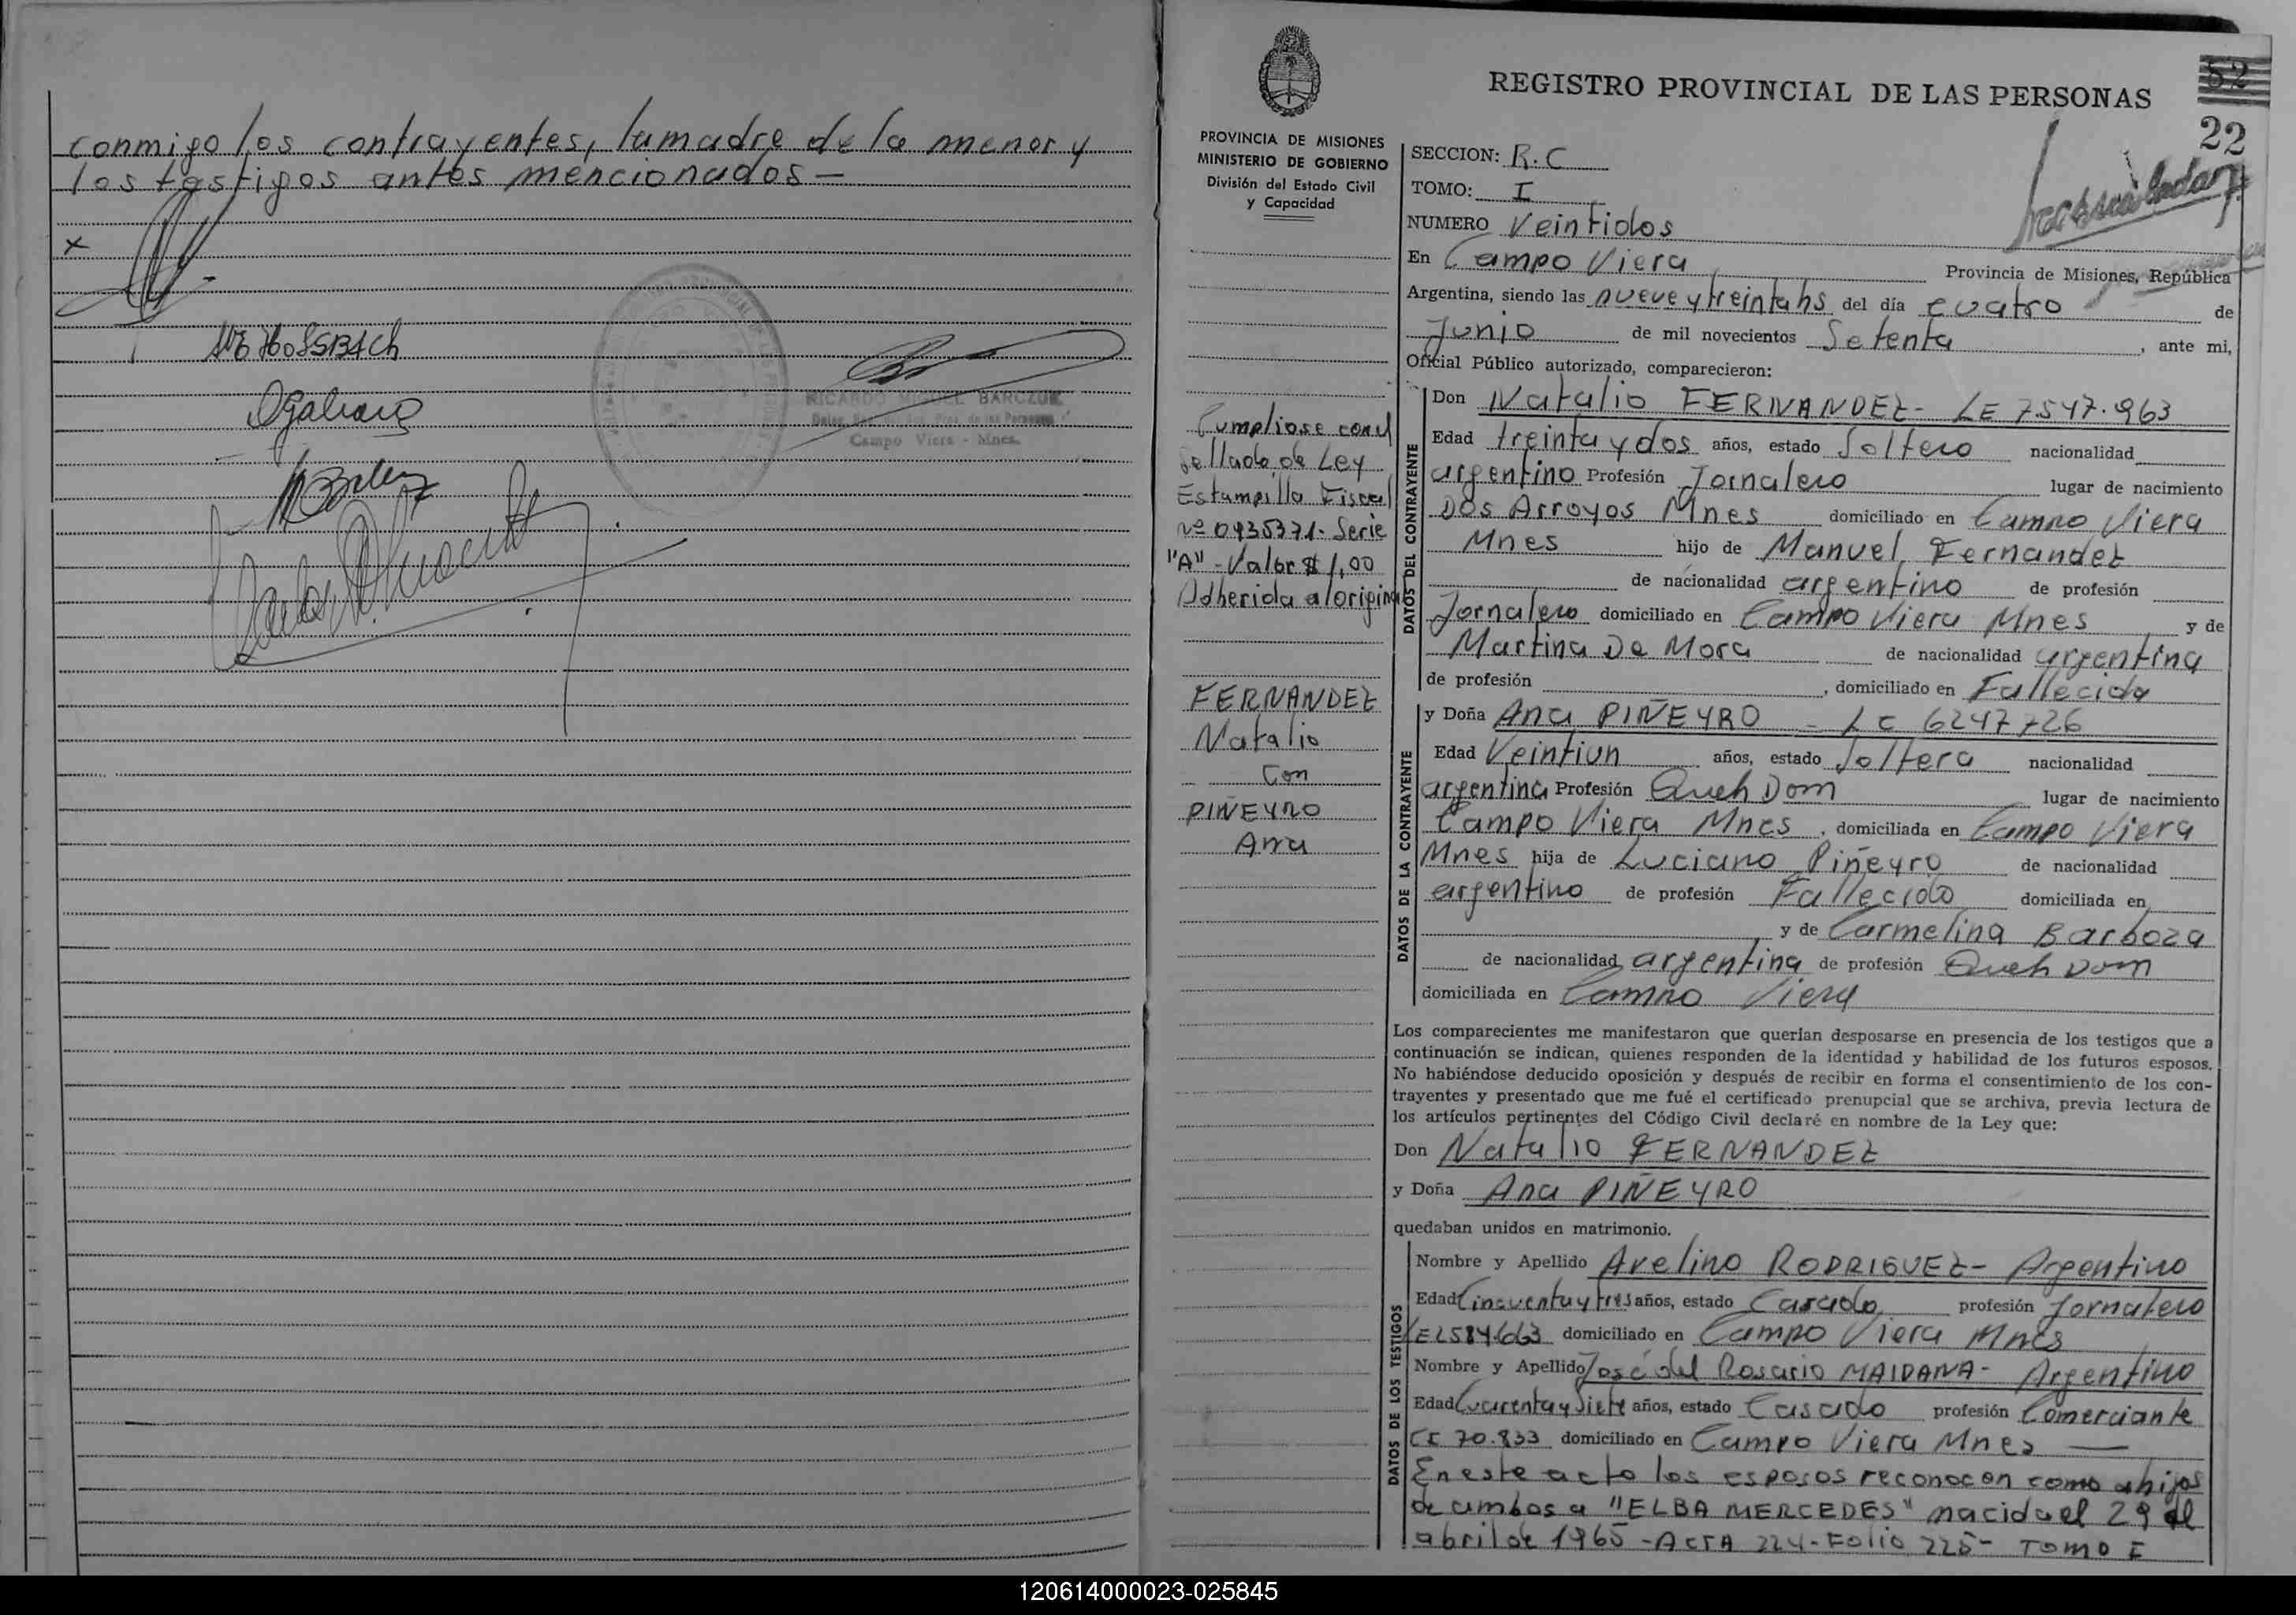 conmigo los contrayentes, la madre de la menor y
los testigos antes mencionados —
x
RICARDO MIGUEL BARCZUK
Campo Viera - Mnes.
52
REGISTRO PROVINCIAL DE LAS PERSONAS
22
PROVINCIA DE MISIONES
MINISTERIO DE GOBIERNO
División del Estado Civil
y Capacidad
Cumpliose con el
Sellado de Ley
Estampilla Fiscal
Nº 0935371 - Serie
"A" - Valor $ 1,00
Adherida al original
FERNANDEZ
Natalio
Con
PIÑEYRO
Ana
SECCION: R.C
TOMO: I
NUMERO Veintidos
En Campo Viera Provincia de Misiones, República
Argentina, siendo las nueve y treinta hs del día cuatro de
Junio de mil novecientos Setenta, ante mi,
Oficial Público autorizado, comparecieron:
DATOS DEL CONTRAYENTE
Don Natalio FERNANDEZ - LE 7.547.963
Edad treinta y dos años, estado Soltero nacionalidad
argentino Profesión Jornalero lugar de nacimiento
Dos Arroyos Mnes domiciliado en Campo Viera
Mnes hijo de Manuel Fernandez
de nacionalidad argentino de profesión
Jornalero domiciliado en Campo Viera Mnes y de
Martina De Mora de nacionalidad argentina
de profesión , domiciliado en Fallecida
DATOS DE LA CONTRAYENTE
y Doña Ana PIÑEYRO - LC 6247726
Edad Veintiun años, estado Soltera nacionalidad
argentina Profesión Queh Dom lugar de nacimiento
Campo Viera Mnes, domiciliada en Campo Viera
Mnes hija de Luciano Piñeyro de nacionalidad
argentino de profesión Fallecido domiciliada en
y de Carmelina Barboza
de nacionalidad argentina de profesión Queh Dom
domiciliada en Campo Viera
Los comparecientes me manifestaron que querían desposarse en presencia de los testigos que a
continuación se indican, quienes responden de la identidad y habilidad de los futuros esposos.
No habiéndose deducido oposición y después de recibir en forma el consentimiento de los con-
trayentes y presentado que me fué el certificado prenupcial que se archiva, previa lectura de
los artículos pertinentes del Código Civil declaré en nombre de la Ley que:
Don Natalio FERNANDEZ
y Doña Ana PIÑEYRO
quedaban unidos en matrimonio.
DATOS DE LOS TESTIGOS
Nombre y Apellido Avelino RODRIGUEZ - Argentino
Edad Cincuenta y tres años, estado Casado profesión Jornalero
domiciliado en Campo Viera Mnes
Nombre y Apellido José del Rosario MAIDANA - Argentino
Edad Cuarenta y Siete años, estado Casado profesión Comerciante
CI 70.833 domiciliado en Campo Viera Mnes —
En este acto los esposos reconocen como a hijos
de ambos a "ELBA MERCEDES" nacida el 29 de
abril de 1965 - ACTA 224 - Folio 225 - TOMO I
120614000023-025845